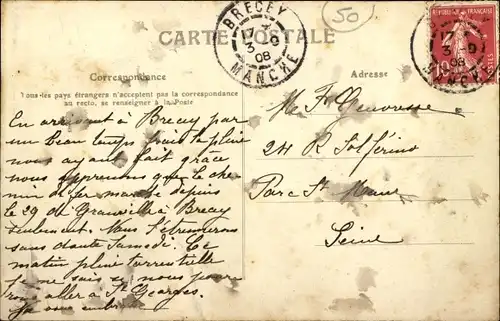 CARTE POSTALE
BRECEY
17
3 -9
08
MANCHE
50
REPUBLIQUE FRANCAISE
10
Correspondance
Tous les pays étrangers n'acceptent pas la correspondance
au recto, se renseigner à la Poste
Adresse
En arrivant à Brecey par
un beau temps frais la pluie
nous ayant fait grâce
nous apprenons que le che-
min de fer marche depuis
le 29 de Granville à Brecey
seulement. Nous l'étrennerons
sans doute Samedi. Ce
matin pluie torrentielle
je ne sais si nous pour-
rons aller à St Georges.
Je vous embrasse
M F
24 R Solferino
Parc St Maur
Seine